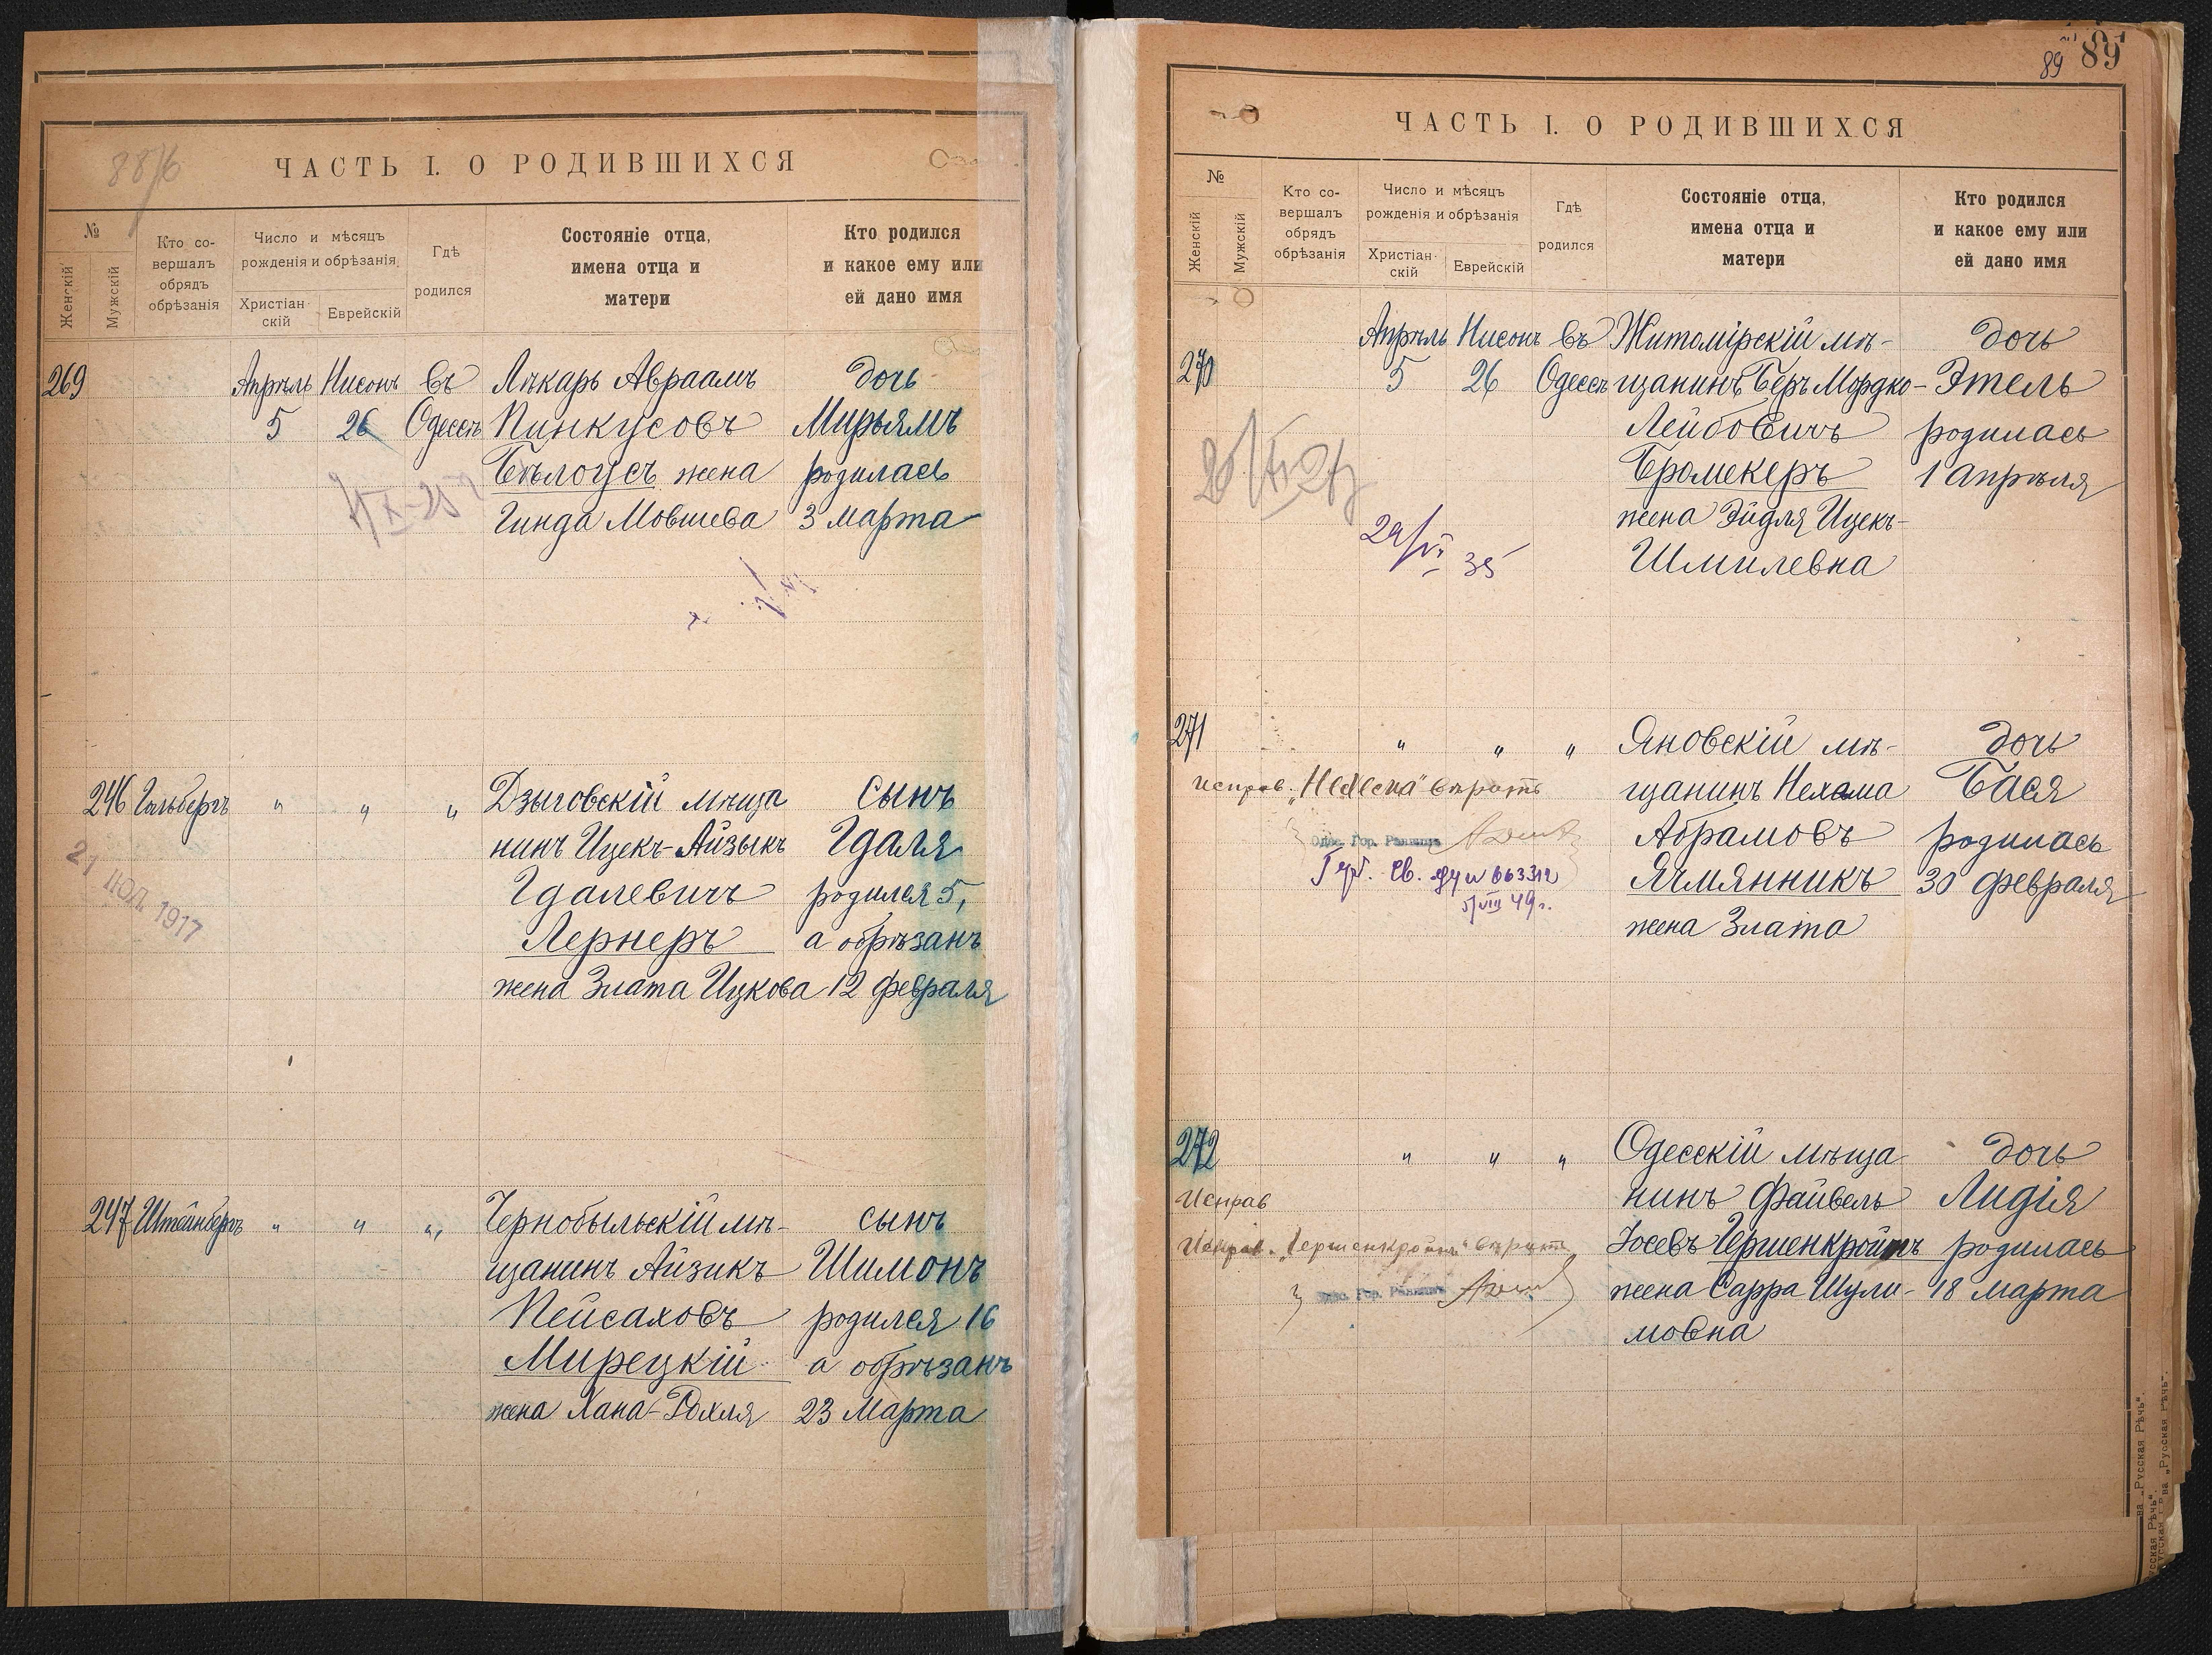 88/б
ЧАСТЬ I. О РОДИВШИХСЯ
№
Женскій
Мужскій
Кто со-
вершалъ
обрядъ
обрѣзанія
Число и мѣсяцъ
рожденія и обрѣзанія
Христіан-
скій
Еврейскій
Гдѣ
родился
Состояніе отца,
имена отца и
матери
Кто родился
и какое ему или
ей дано имя
269 Апрѣль Нисонъ въ Лѣкарь Авраамъ дочь
5 26 Одессѣ Пинкусовъ Мирьямъ
Бѣлоусъ жена родилась
Гинда Мовшева 3 марта
246 Гольбергъ " " " Дзыговскій мѣща сынъ
нинъ Ицекъ-Айзыкъ Гдаля
Гдалевичъ родился 5,
Лернеръ а обрѣзанъ
жена Злата Ицкова 12 февраля
21 ІЮЛ 1917
247 Штейнбергъ " " " Чернобыльскій мѣ- сынъ
щанинъ Айзикъ Шимонъ
Пейсаховъ родился 16
Мирецкій а обрѣзанъ
жена Хана-Рохля 23 марта
89 89
ЧАСТЬ I. О РОДИВШИХСЯ
№
Женскій
Мужскій
Кто со-
вершалъ
обрядъ
обрѣзанія
Число и мѣсяцъ
рожденія и обрѣзанія
Христіан-
скій
Еврейскій
Гдѣ
родился
Состояніе отца,
имена отца и
матери
Кто родился
и какое ему или
ей дано имя
Апрѣль Нисонъ въ Житомірскій мѣ- дочь
270 5 26 Одессѣ щанинъ Беръ Мордко- Этель
Лейбовичъ родилась
Бромекеръ 1 апрѣля
жена Эйдля Ицекъ-
Шмилевна
29/VI 35
271 " " " Яновскій мѣ- дочь
щанинъ Нехама Бася
Абрамовъ родилась
Ячмянникъ 30 февраля
жена Злата
исправ. „Нехема" вѣрить
Одес. Гор. Раввинъ
5/VIII 49 г.
272 " " " Одесскій мѣща дочь
нинъ Файвель Лидія
Іосевъ Гершенкройнъ родилась
жена Сарра Шули- 18 марта
мовна
Исправ
Исправ. „Гершенкройнъ" вѣрить
Одес. Гор. Раввинъ
ва „Русская Рѣчь".
ва „Русская Рѣчь".